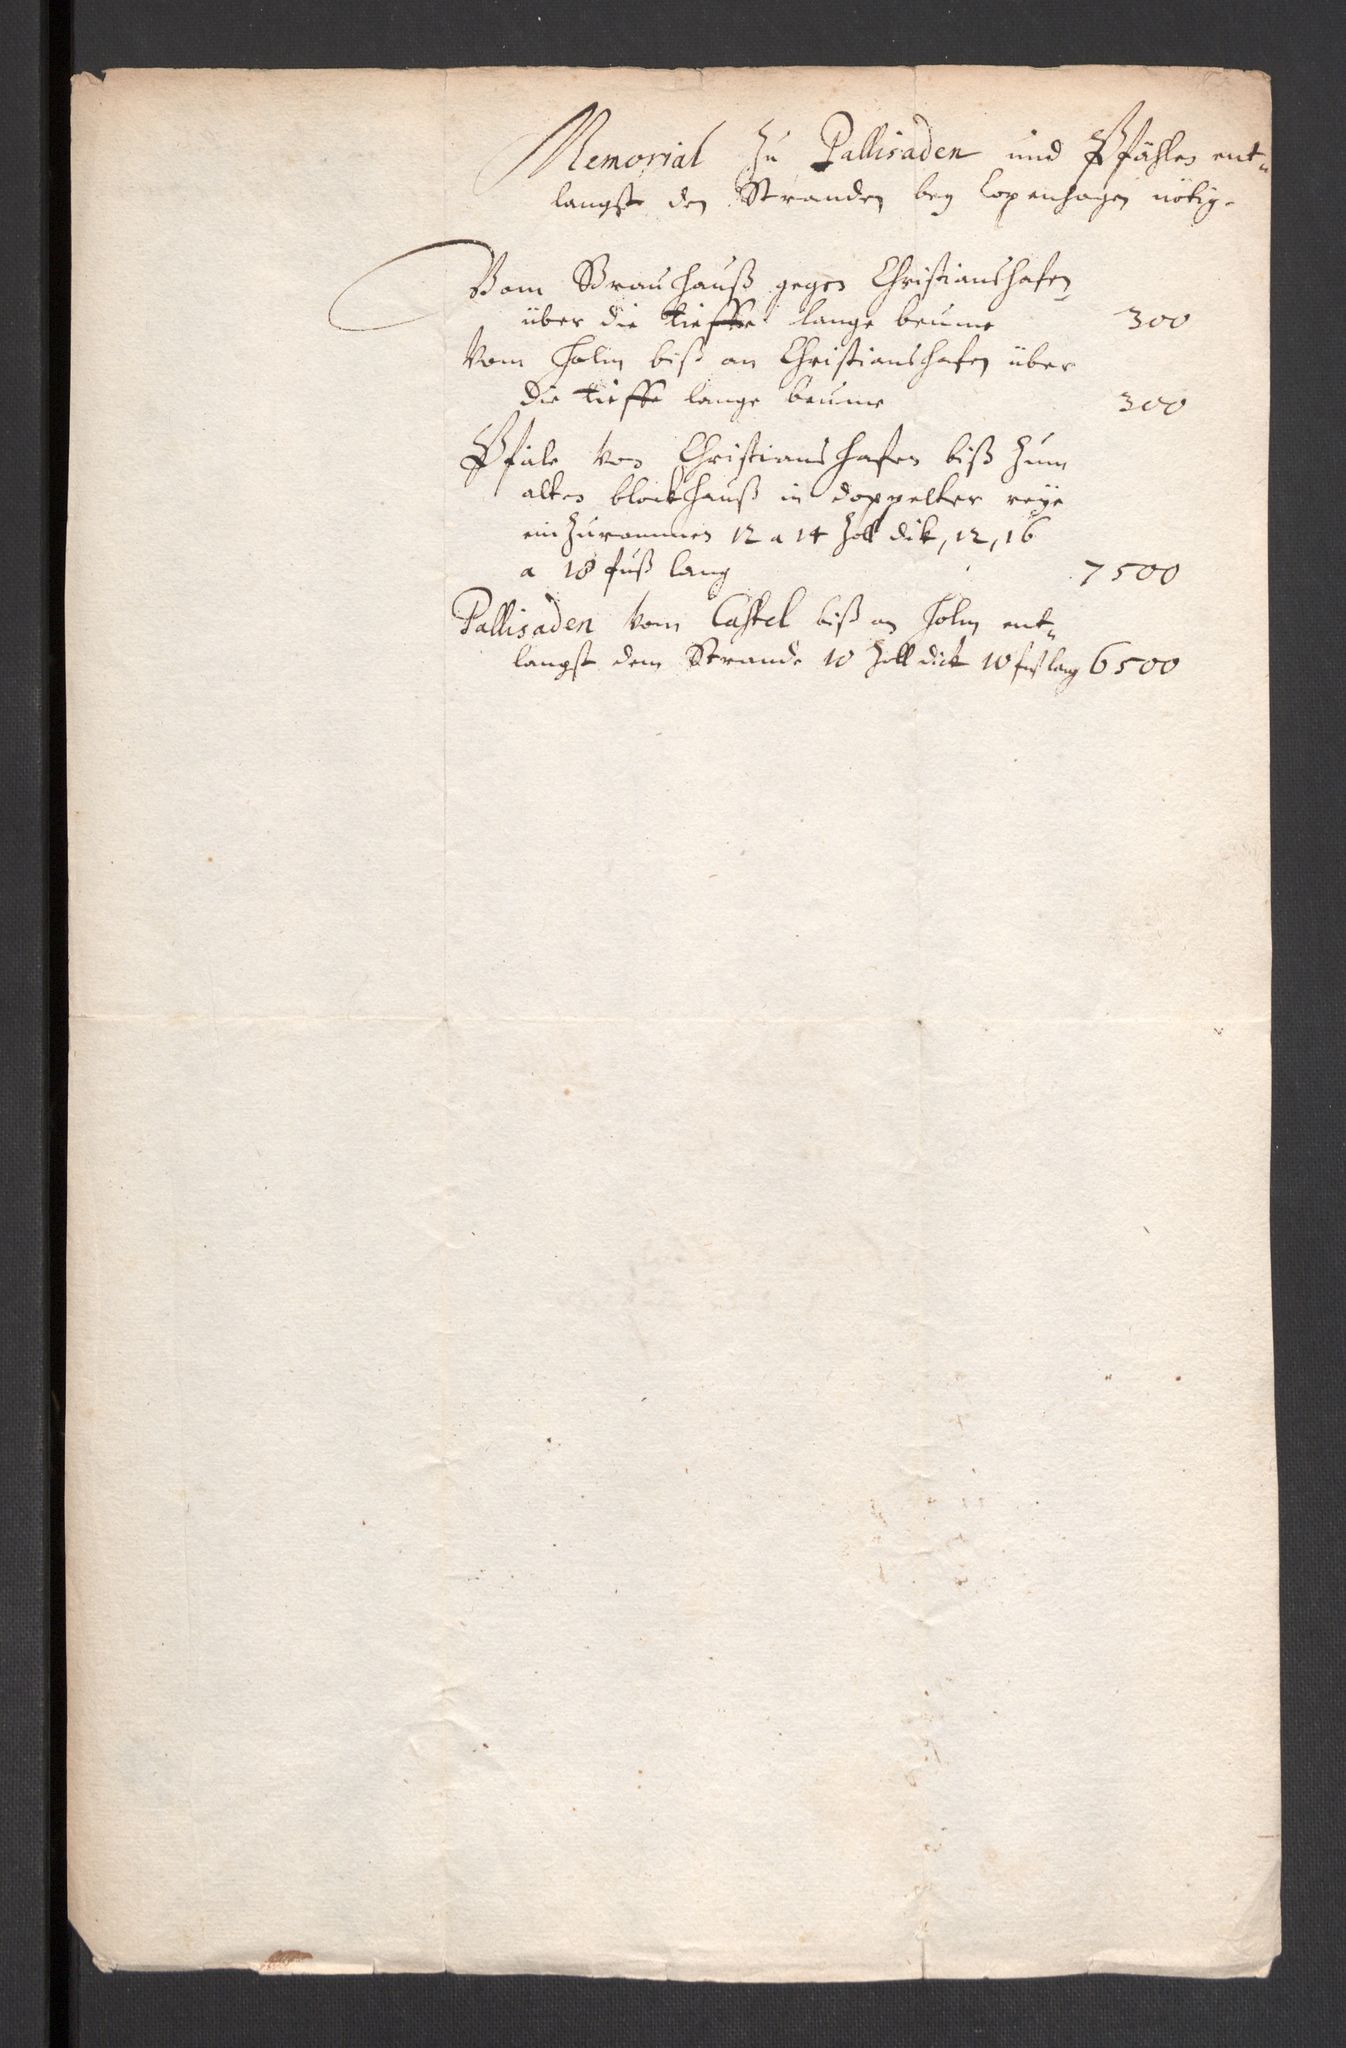 Memorial zu Pallisaden und Pfählen ent-
langst den Stranden bey Copenhagen nötig.
Vom Brauhauß gegen Christianshafen
über die tieffe lange beume 300
Vom Holm biß an Christianshafen über
die tieffe lange beume 300
Pfäle von Christianshafen biß zum
alten blockhauß in doppelter reye
einzurammen 12 a 14 Zoll dik, 12, 16
a 18 fuß lang 7500
Pallisaden vom Castel biß an Holm ent-
langst dem Strande 10 Zoll dick 10 fus lang 6500